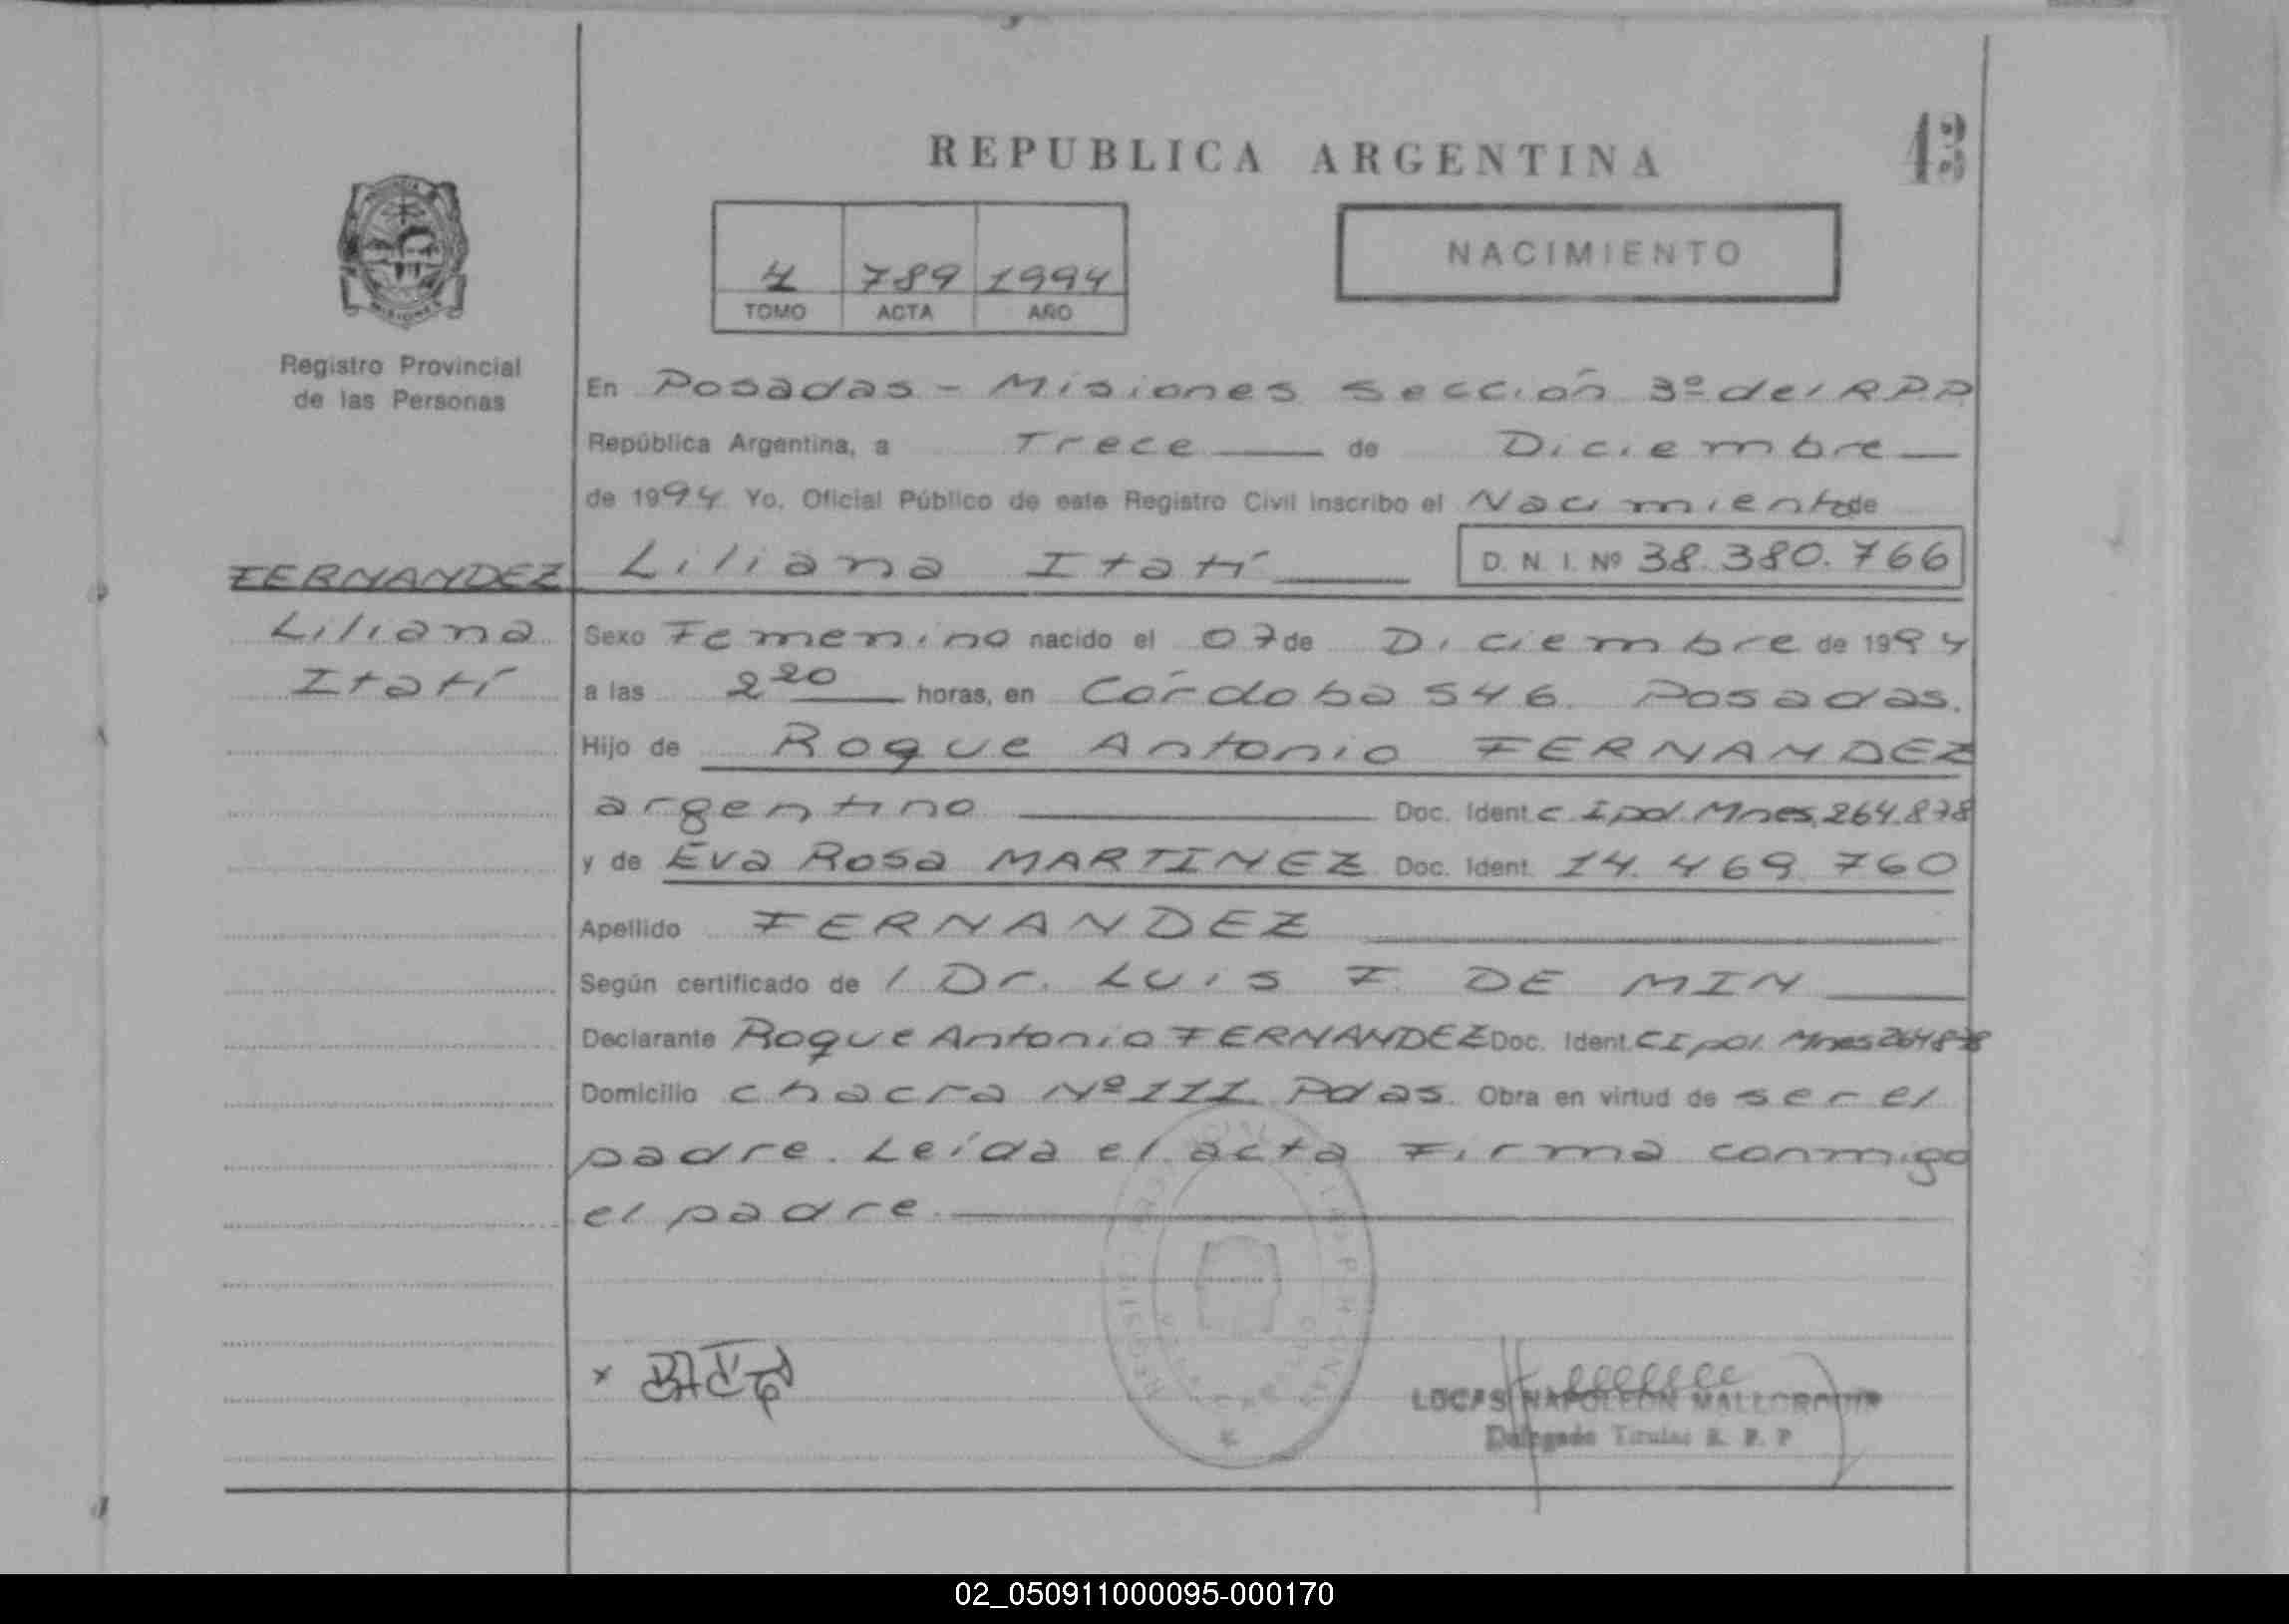 REPUBLICA ARGENTINA
43
4 789 1994
TOMO ACTA AÑO
NACIMIENTO
Registro Provincial
de las Personas
En Posadas - Misiones Sección 3º del RPP
República Argentina, a Trece de Diciembre
de 1994 Yo, Oficial Público de este Registro Civil inscribo el Nacimiento de
FERNANDEZ Liliana Itatí D. N. I. Nº 38.380.766
Liliana
Itatí
Sexo Femenino nacido el 07 de Diciembre de 1994
a las 2 20 horas, en Córdoba 546. Posadas.
Hijo de Roque Antonio FERNANDEZ
argentino Doc. Ident C.I pol. Mnes. 264.878
y de Eva Rosa MARTINEZ Doc. Ident. 14.469.760
Apellido FERNANDEZ
Según certificado de / Dr. Luis F. DE MIN
Declarante Roque Antonio FERNANDEZ Doc. Ident. CI pol. Mnes 264878
Domicilio chacra Nº 111 Pdas. Obra en virtud de ser el
padre. Leída el acta Firma conmigo
el padre.
x
LUCAS NAPOLEON MALLORQUIN
Delegado Titular R. P. P
02_050911000095-000170